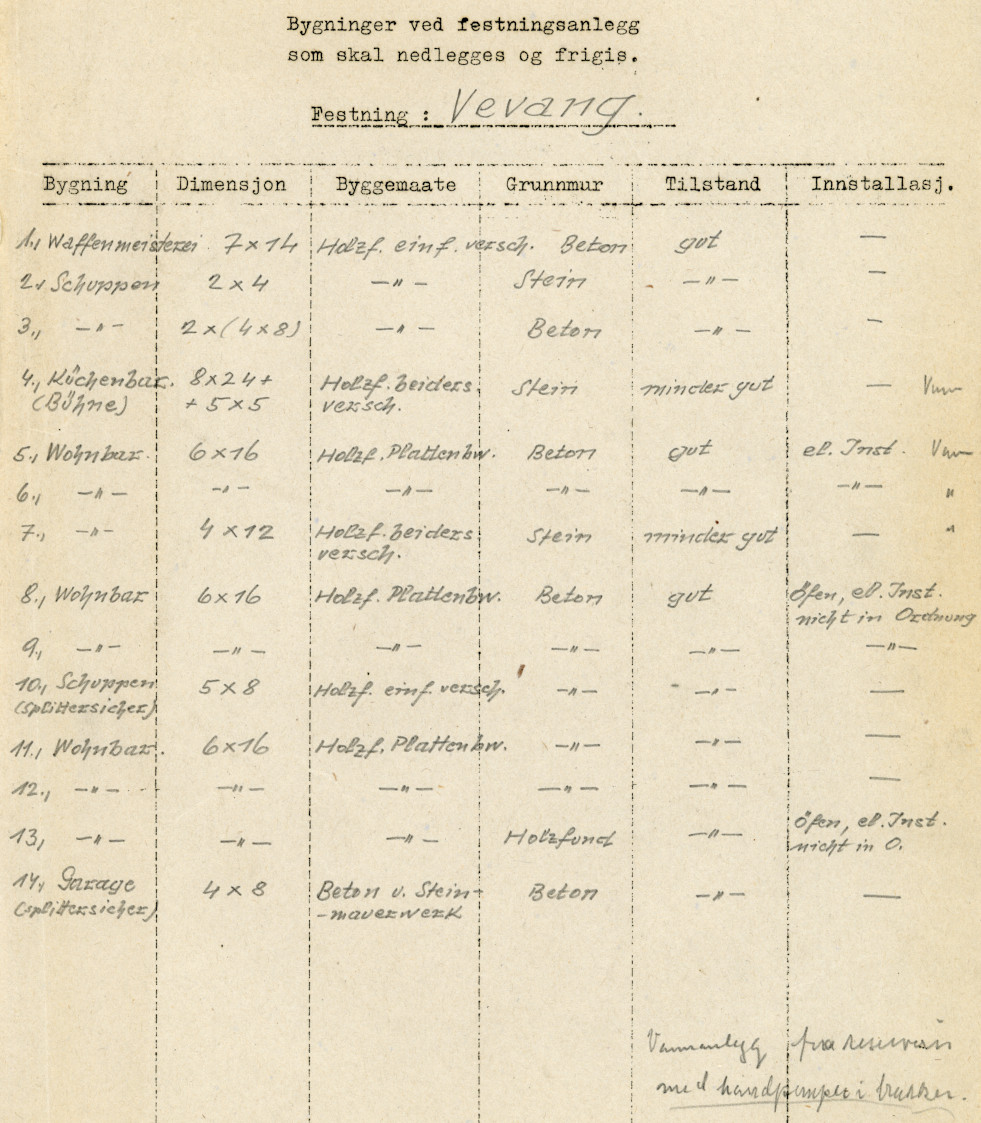 Bygninger ved festningsanlegg
som skal nedlegges og frigis.
Festning : Vevang.
Bygning Dimensjon Byggemaate Grunnmur Tilstand Innstallasj.
1., Waffenmeisterei 7 x 14 Holzf. einf. versch. Beton gut —
2., Schuppen 2 x 4 —"— Stein —"— —
3., —"— 2 x (4 x 8) —"— Beton —"— —
4., Küchenbar. 8 x 24 + Holzf. beiders. Stein minder gut — Vann
(Bühne) + 5 x 5 versch.
5., Wohnbar. 6 x 16 Holzf. Plattenbw. Beton gut el. Inst. Vann
6., —"— —"— —"— —"— —"— —"— "
7., —"— 4 x 12 Holzf. beiders. Stein minder gut — "
versch.
8., Wohnbar 6 x 16 Holzf. Plattenbw. Beton gut Öfen, el. Inst.
nicht in Ordnung
9., —"— —"— —"— —"— —"— —"—
10., Schuppen 5 x 8 Holzf. einf. versch. —"— —"— —
(splittersicher)
11., Wohnbar. 6 x 16 Holzf. Plattenbw. —"— —"— —
12., —"— —"— —"— —"— —"— —
13, —"— —"— —"— Holzfund —"— Öfen, el. Inst.
nicht in O.
14., Garage 4 x 8 Beton u. Stein- Beton —"— —
(splittersicher) -mauerwerk
Vannanlegg fra reservoir
med handpumper i brakker.